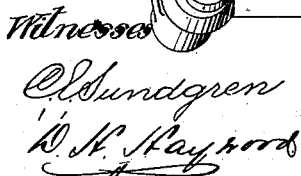 Witnesses
C. Sundgren
D. H. Haywood